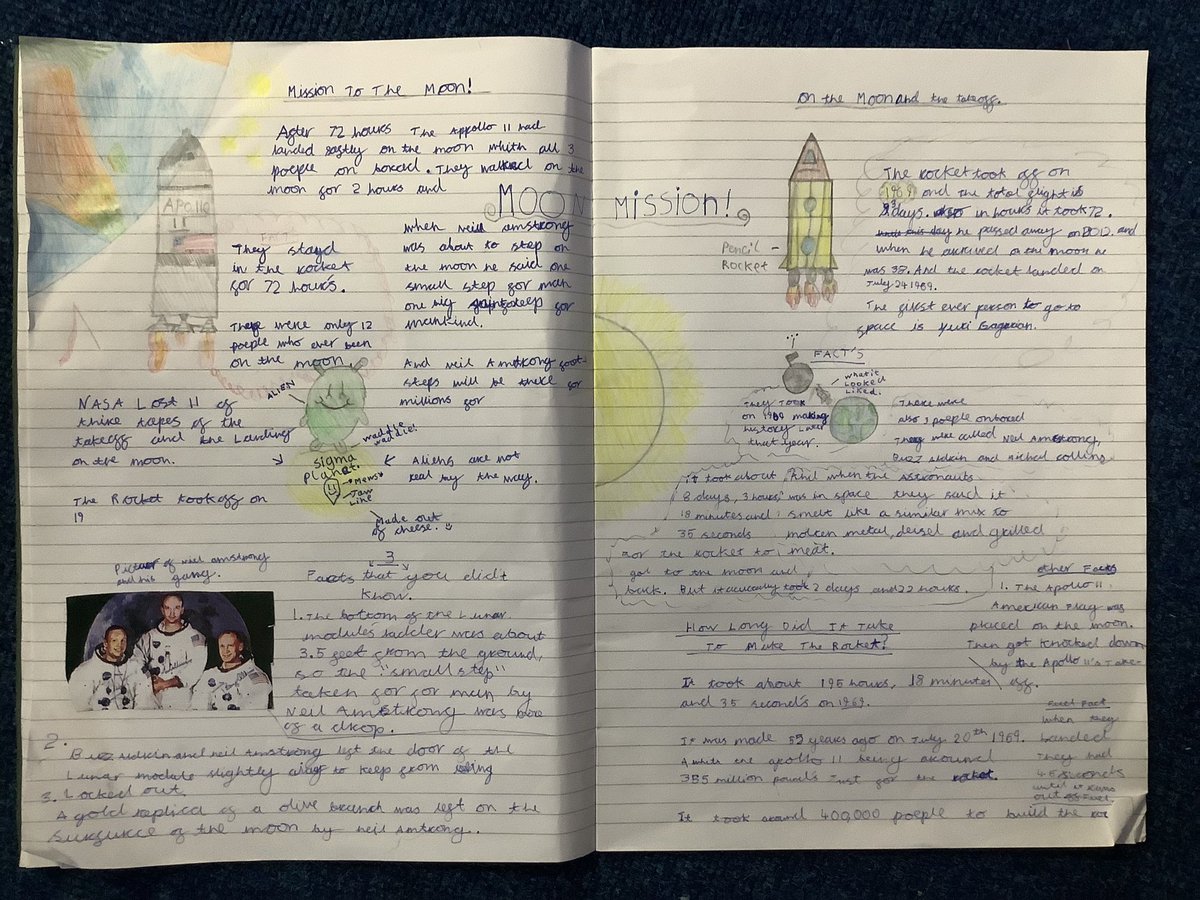 Mission To The Moon!
After 72 hours The Appollo 11 had
landed safly on the moon whith all 3
poeple on borad. They walked on the
moon for 2 hours and
APOLLO
11
MOON Mission!
They stayd
in the rocket
for 72 hours.
when neil amstrong
was about to step on
the moon he said one
small step for man
one big leep for
mankind.
There were only 12
poeple who ever been
on the moon.
And neil Amstrong foot-
steps will be there for
millions for
ALIEN
NASA Lost 11 of
the tapes of the
takeoff and the Landing
on the moon.
waddle
waddle!
sigma
planet.
*Mews*
Jaw
Line
Aliens are not
real by the way.
Made out
of cheese.
The Rocket took off on
19
Picture of neil amstrong
and his gang.
3
Facts that you didt
know.
1. The bottom of the Lunar
modules ladder was about
3.5 feet from the ground,
so the "small step"
taken for for man by
Neil Amstrong was more
of a drop.
2.
Buzz aldrin and neil Amstrong left the door of the
Lunar module slightly to keep from being
Locked out.
3.
A gold replica of a olive branch was left on the
surfurce of the moon by neil Amtrong.
on the Moon and the takeoff.
Pencil
Rocket
The rocket took off on
1969 and the total flight is
8 days. in hours it took 72.
he passed away on 2012. and
when he arrived on the moon he
was 38. And the rocket landed on
July 24 1969.
The first ever person to go to
space is Yuri Gagarian.
FACT'S
what it
Looked
Liked.
They Took
on 1969 making
history Later
that year.
There were
also 3 poeple onbord
They were called Neil Amstrong,
Buzz aldrin and Michal collins
it took about
8 days, 3 hours
18 minutes and
35 seconds
for the rocket to
get to the moon and
back. But it actually took 2 days and 22 hours.
And when the Astronauts
was in space they said it
smelt like a similar mix to
molten metal, deisel and grilled
meat.
How Long Did It Take
To Make The Rocket?
It took about 195 hours, 18 minutes
and 35 second's on 1969.
It was made 55 years ago on July 20th 1969.
the apollo 11 being around
355 million pounds Just for the rocket.
It took around 400,000 poeple to build the
other Facts
1. The Apollo 11
American Flag was
placed on the moon.
Then got knocked down
by the Apollo 11's take-
off.
Fuel Fact
when they
Landed
They had
45 seconds
until it runs
out of Fuel.